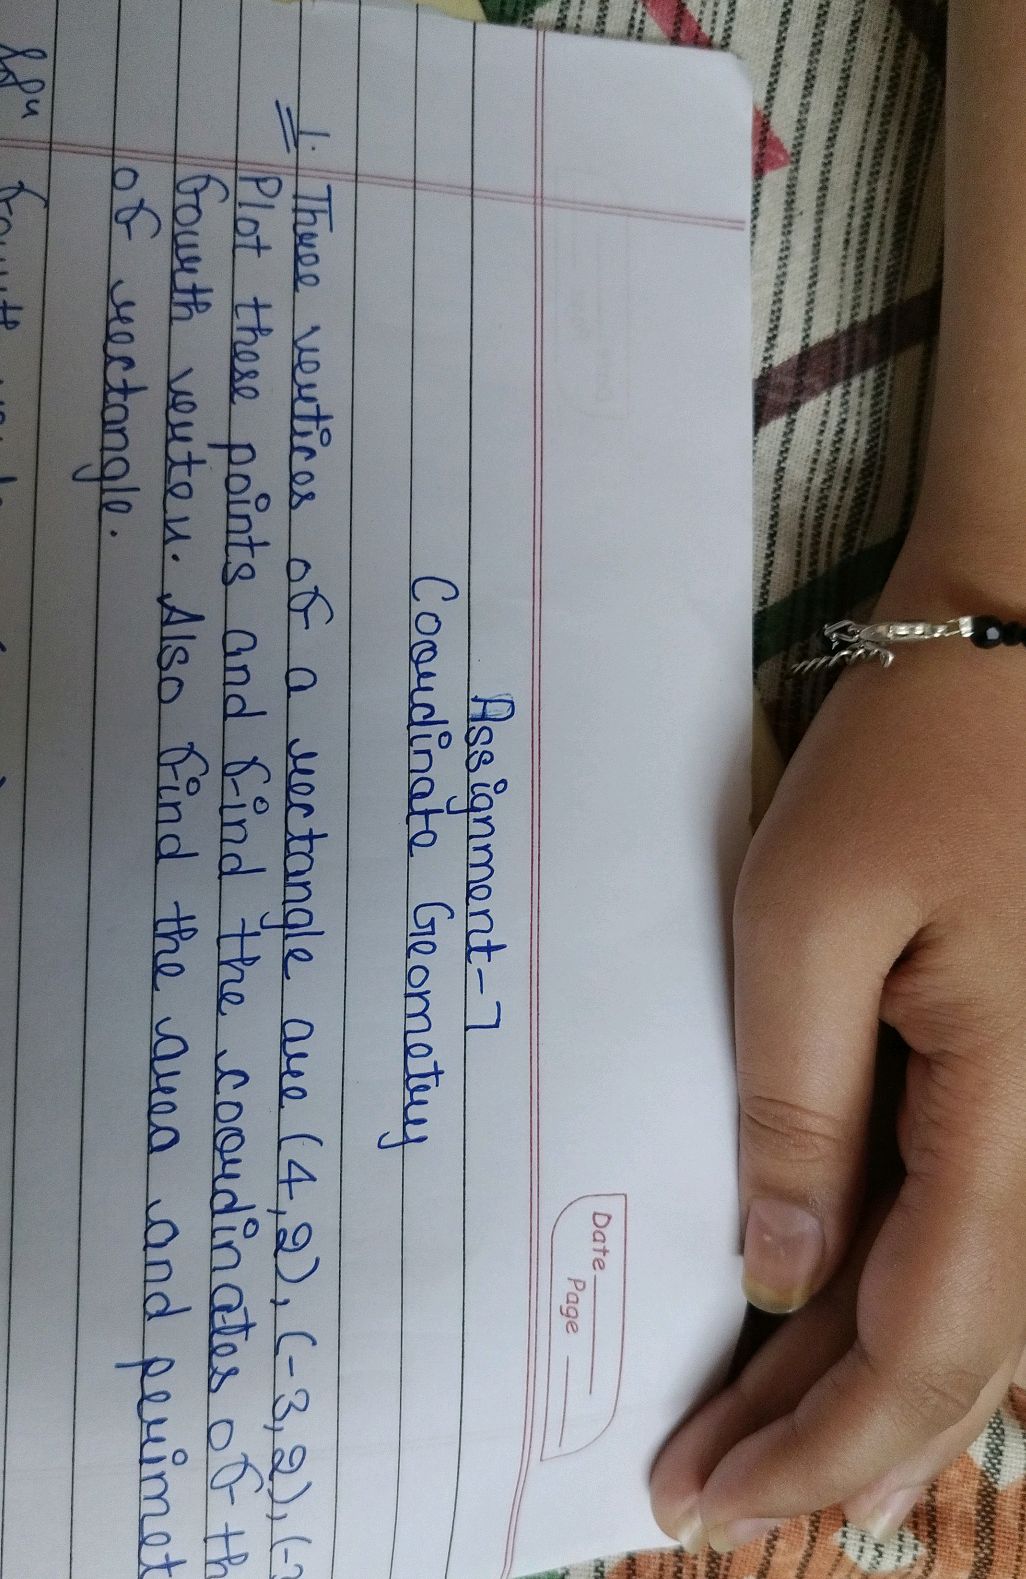 Date
Page
Assignment-7
Coordinate Geometry
1. Three vertices of a rectangle are (4,2), (-3,2), (-
Plot these points and find the coordinates of th
fourth vertex. Also find the area and perimet
of rectangle.